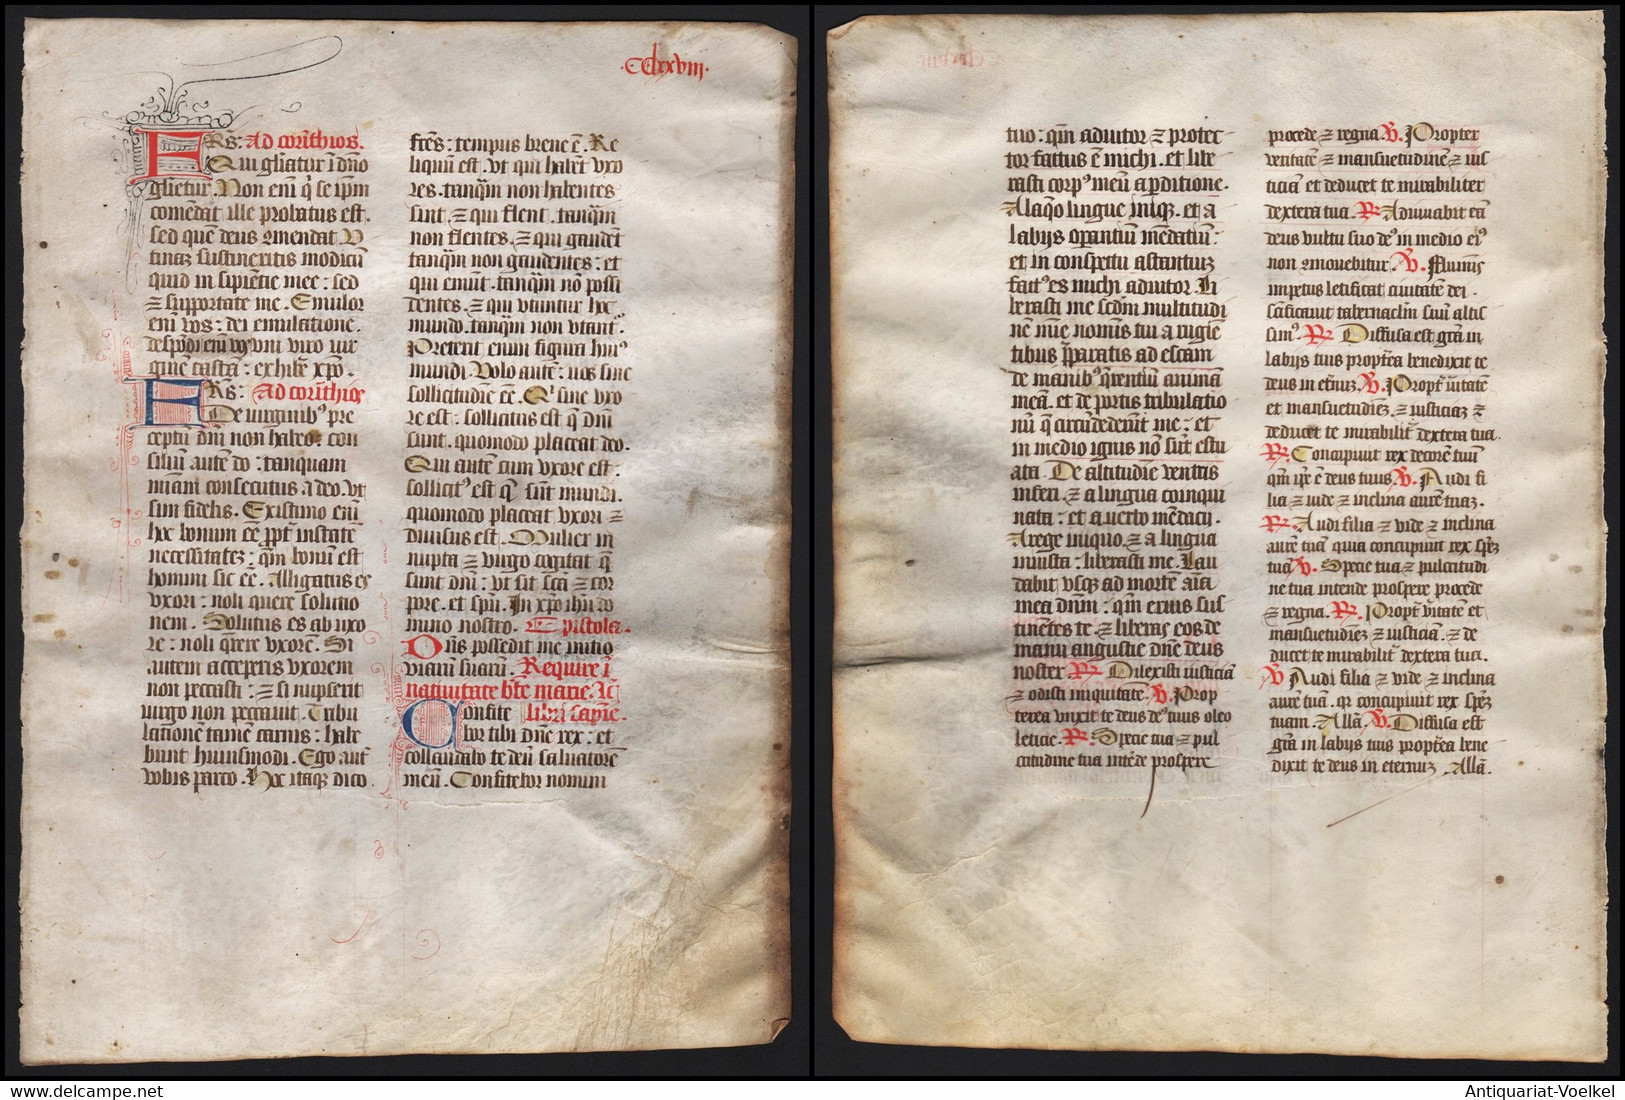 ·CClxxviii·
FRēs: Ad corīthios.
Qui gl̄iatur ī dn̄o
gl̄ietur. Non enī q̄ se ip̄m
comēdat ille probatus est.
sed quē deus ꝯmendat. V
tinaꝫ sustineritis modicū
quid in sipiētie mee: sed
⁊ supportate me. Emulor
enī vos: dei emulatione.
despōdi enī vos uni viro uir
ginē castā: exhibē xp̄o.
FRēs: Ad corīthios
De uirginibꝰ pre
ceptū dn̄i non habeo: con
siliū autē do: tanquam
m̄iam consecutus a deo. vt
sim fidelis. Existimo enī
hoc bonum eē ꝓpt̄ instātē
necessitatē: qm̄ bonū est
homini sic eē. Alligatus es
vxori: noli querere solutio
nem. Solutus es ab uxo
re: noli q̄rere vxorē. Si
autem acceperis vxorem
non peccasti: ⁊ si nupserit
uirgo non peccauit. Tribu
lationē tamē carnis: habe
bunt huiusmodi. Ego aut̄
vobis parco. Hoc itaqꝫ dico.
fr̄es: tempus breue ē. Re
liquū est. vt qui habēt vxo
res. tanq̄m non habentes
sint. ⁊ qui flent. tanq̄m
non flentes. ⁊ qui gaudēt
tanq̄m non gaudentes: et
qui emūt. tanq̄m nō possi
dentes. ⁊ qui vtūntur hoc
mundo. tanq̄m non vtant̄.
Preterit enim figura huiꝰ
mundi. Volo autē: uos sine
sollicitudiē eē. Qi sine vxo
re est: sollicitus est q̄ dn̄i
sunt. quomodo placeat deo.
Qui autē cum vxore est:
sollicitꝰ est q̄ sūt mundi.
quomodo placeat vxori ⁊
diuisus est. Mulier in
nupta ⁊ virgo cogitat q̄
sunt dn̄i: vt sit scā ⁊ cor
pore. et spū. In xp̄o ih̄u do
mino nostro. Epistola.
Dn̄s possedit me initio
viarū suarū. Require ī
natiuitate bt̄e marie. Ac̄
Confite libri sapiē.
bor tibi dn̄e rex: et
collaudabo te deū saluatorē
meū. Confitebor nomini
tuo: qm̄ adiutor ⁊ protec
tor factus ē michi. et libe
rasti corpꝰ meū a perditione.
A laq̄o lingue iniq̄. et a
labijs operantiū mēdatiū:
et in conspectu astantiuꝫ
factꝰ es michi adiutor. Li
berasti me scd̄m multitudi
nē mīe nominis tui a rugie
tibus p̄paratis ad escam
de manibꝰ q̄rentiū animā
meā. et de portis tribulatio
nū q̄ circūdederūt me: et
in medio ignis nō sūt estu
ata. De altitudīe ventris
inferi. ⁊ a lingua coinqui
nata: et a uerbo mēdacij.
A rege iniquo. ⁊ a lingua
iniusta: liberasti me. Lau
dabit vsqꝫ ad mortē aīa
mea dn̄m: qm̄ eruis sus
tinētes te. ⁊ liberas eos de
manu angustie dn̄e deus
noster. ℞ Dilexisti iusticiā
⁊ odisti iniquitatē. ℣. Prop
terea vnxit te deus deꝰ tuus oleo
leticie. ℞. Specie tua ⁊ pul
critudine tua intēde prospere
procede ⁊ regna. ℣. Propter
veritatē ⁊ mansuetudinē ⁊ ius
ticiā et deducet te mirabiliter
dextera tua. ℞. Adiuuabit eā
deus vultu suo deꝰ in medio eiꝰ
non ꝯmouebitur. ℣. Fluminis
impetus letificat ciuitatē dei.
sāctificauit tabernaclm̄ suū altis
simꝰ. ℞. Diffusa est grā in
labijs tuis propt̄ea benedixit te
deus in et̄nuꝫ. ℣. Propt̄ ūitatē
et mansuetudiēꝫ ⁊ iusticiaꝫ ⁊
deducet te mirabilit̄ dextera tua.
℞. Concipiuit rex decorē tuū
qm̄ ip̄e ē deus tuus. ℣. Audi fi
lia ⁊ vide ⁊ inclina aurē tuaꝫ.
℞. Audi filia ⁊ vide ⁊ inclina
aurē tuā quia concupiuit rex sp̄eꝫ
tuā. ℣. Specie tua ⁊ pulcritudi
ne tua intende prospere procede
⁊ regna. ℞. Propt̄ ūitatē et
mansuetudiēꝫ ⁊ iusticiā. ⁊ de
ducet te mirabilit̄ dextera tua.
℣ Audi filia ⁊ vide ⁊ inclina
aurē tuā. qr concupiuit rex sp̄eꝫ
tuam. Allā. ℣. Diffusa est
grā in labijs tuis propt̄ea bene
dixit te deus in eternuꝫ. Allā.
www.delcampe.net
Antiquariat-Voelkel